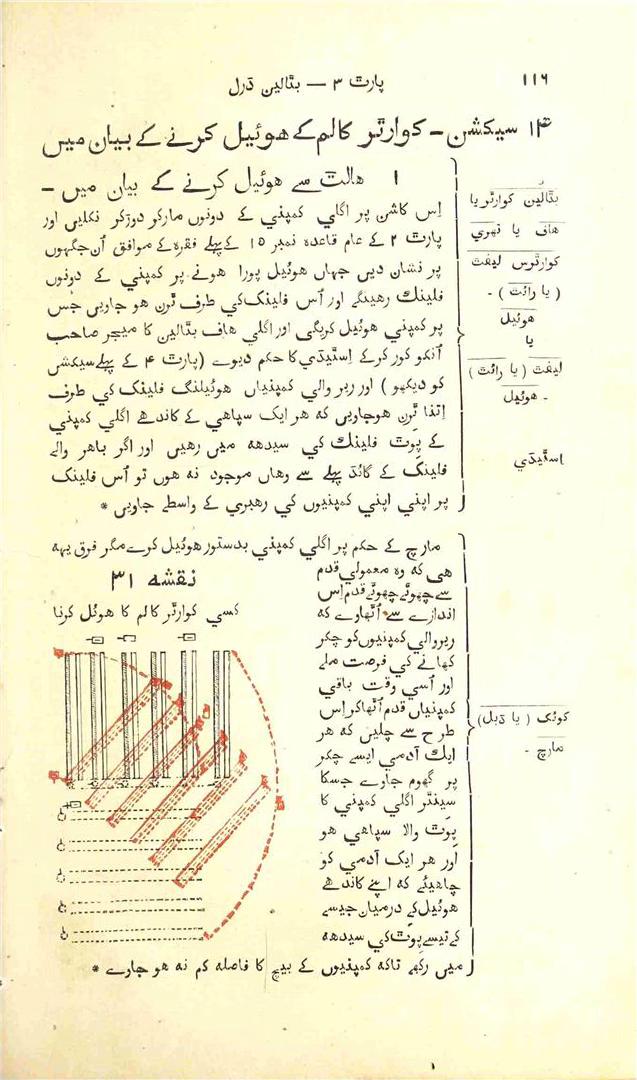 ١١٦
پارٹ ٣ — بٹالین ڈرل
١٤ سیکشن - کوارٹر کالم کے هوئیل کرنے کے بیان میں
١ هالٹ سے هوئیل کرنے کے بیان میں -
اِس کاشن پر اگلي کمپني کے دونوں مارکر دوڑکر نکلیں اور
پارٹ ٢ کے عام قاعدہ نمبر ١٥ کے پہلے فقرہ کے موافق اُن جگہوں
پر نشان دیں جہاں هوئیل پورا هونے پر کمپني کے دونوں
فلینک رهینگے اور اُس فلینک کي طرف ٹرن هو جاویں جس
پر کمپني هوئیل کریگي اور اگلي هاف بٹالین کا میجر صاحب
اُنکو کور کرکے اِسٹیڈي کا حکم دیوے (پارٹ ۴ کے پہلے سیکشن
کو دیکھو) اور ریر والي کمپنیاں هوئیلنگ فلینک کي طرف
اِتنا ٹرن هوجاویں که هر ایک سپاهي کے کاندهے اگلي کمپني
کے پِوٹ فلینک کي سیدهه میں رهیں اور اگر باهر والے
فلینک کے گائڈ پہلے سے وهاں موجود نه هوں تو اُس فلینک
پر اپني اپني کمپنیوں کي رهبري کے واسطے جاویں *
بٹالین کوارٹر یا
هاف یا تهري
کوارٹرس لیفٹ
( یا رائٹ ) -
هوئیل
یا
لیفٹ ( یا رائٹ )
هوئیل -
اسٹیڈي
مارچ کے حکم پر اگلي کمپني بدستور هوئیل کرے مگر فرق یہه
هي که وہ معمولي قدم
سے چهوٹے چهوٹے قدم اِس
اندازے سے اُٹهاوے که
ریر والي کمپنیوں کو چکر
کهانے کي فرصت ملے
اور اُسي وقت باقي
کمپنیاں قدم اُٹها کر اِس
طرح سے چلیں که هر
ایک آدمي ایسے چکر
پر گهوم جاوے جسکا
سینٹر اگلي کمپني کا
پِوٹ والا سپاهي هو
اور هر ایک آدمي کو
چاهیئے که اپنے کاندهے
هوئیل کے درمیان جیسے
کے تیسے پِوٹ کي سیدهه
میں رکهے تاکه کمپنیوں کے بیچ کا فاصله کم نه هو جاوے *
کوئک ( یا ڈبل )
مارچ -
نقشه ٣١
کسي کوارٹر کالم کا هوئل کرنا